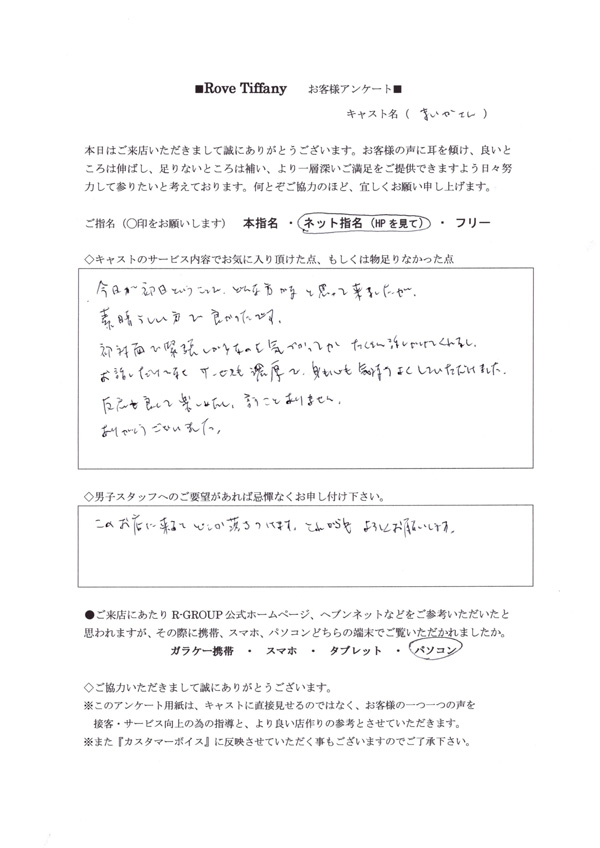 ■Rove Tiffany　お客様アンケート■
キャスト名（ まいかさん ）
本日はご来店いただきまして誠にありがとうございます。お客様の声に耳を傾け、良いと
ころは伸ばし、足りないところは補い、より一層深いご満足をご提供できますよう日々努
力して参りたいと考えております。何とぞご協力のほど、宜しくお願い申し上げます。
ご指名（〇印をお願いします）　本指名　・　ネット指名（HPを見て）　・　フリー
◇キャストのサービス内容でお気に入り頂けた点、もしくは物足りなかった点
今日が初日ということで、どんな方かな と思って来ましたが、
素晴らしい方で良かったです。
初対面で緊張しがちなのを気づかってか たくさん話しかけてくれるし、
お話しだけでなく サービスも濃厚で、身も心も気持ちよくしていただけました。
反応も良くて楽しめたし、言うことありません。
ありがとうございました。
◇男子スタッフへのご要望があれば忌憚なくお申し付け下さい。
このお店に来ると 落ちつけます。これからも よろしくお願いします。
●ご来店にあたり R-GROUP 公式ホームページ、ヘブンネットなどをご参考いただいたと
思われますが、その際に携帯、スマホ、パソコンどちらの端末でご覧いただかれましたか。
ガラケー携帯　・　スマホ　・　タブレット　・　パソコン
◇ご協力いただきまして誠にありがとうございます。
※このアンケート用紙は、キャストに直接見せるのではなく、お客様の一つ一つの声を
接客・サービス向上の為の指導と、より良い店作りの参考とさせていただきます。
※また『カスタマーボイス』に反映させていただく事もございますのでご了承下さい。